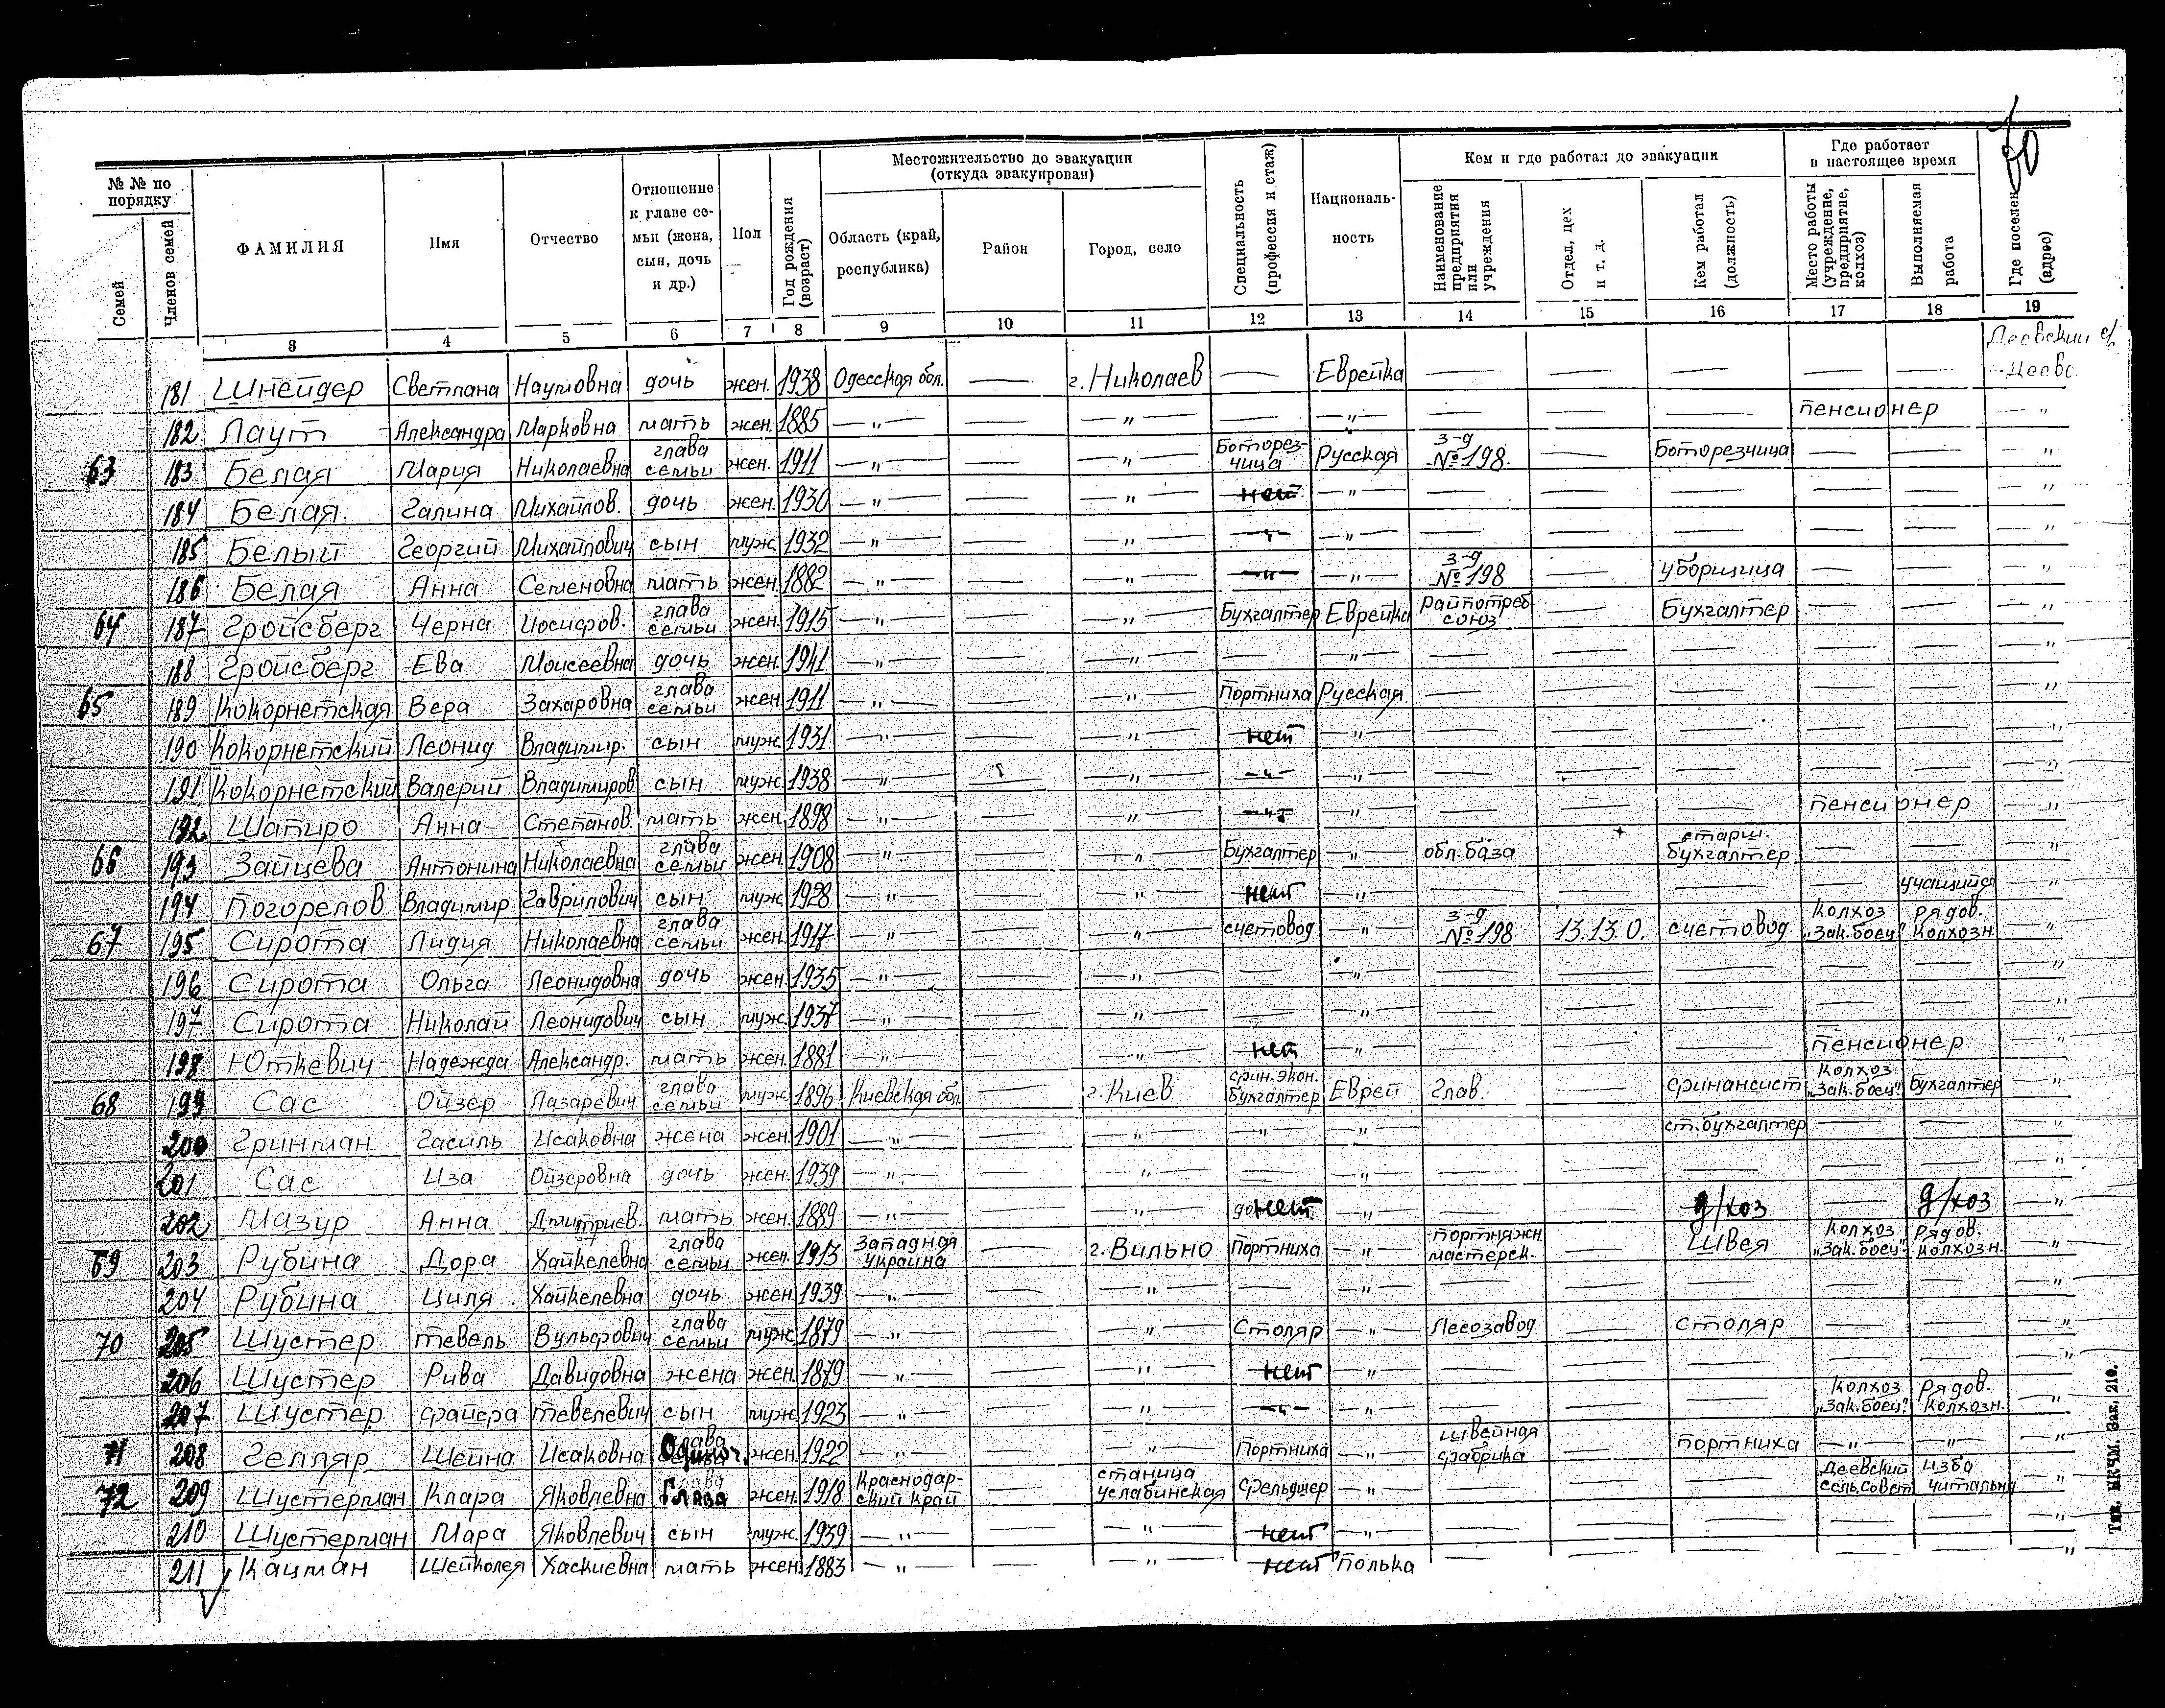 № № по порядку
Семей
Членов семей
ФАМИЛИЯ
Имя
Отчество
Отношение к главе семьи (жена, сын, дочь и др.)
Пол
Год рождения (возраст)
Местожительство до эвакуации (откуда эвакуирован)
Область (край, республика)
Район
Город, село
Специальность (профессия и стаж)
Национальность
Кем и где работал до эвакуации
Наименование предприятия или учреждения
Отдел, цех и т. д.
Кем работал (должность)
Где работает в настоящее время
Место работы (учреждение, предприятие, колхоз)
Выполняемая работа
Где поселен (адрес)
3 4 5 6 7 8 9 10 11 12 13 14 15 16 17 18 19
181 Шнейдер Светлана Наумовна дочь жен. 1938 Одесская обл. — г. Николаев — Еврейка — — — — — Деевский с/
182 Лаут Александра Марковна мать жен. 1885 — „ — — — „ — — — „ — — — — пенсионер — „
63 183 Белая Мария Николаевна глава семьи жен. 1911 — „ — — — „ — Боторезчица Русская з-д №198. — Боторезчица — — „
184 Белая Галина Михайлов. дочь жен. 1930 — „ — — — „ — нет — „ — — — — — — — „
185 Белый Георгий Михайлович сын муж. 1932 — „ — — — „ — — „ — — „ — — — — — — „
186 Белая Анна Семеновна мать жен. 1882 — „ — — — „ — — „ — — „ — з-д №198 — уборщица — — „
64 187 Гройсберг Черна Иосифов. глава семьи жен. 1915 — „ — — — „ — Бухгалтер Еврейка Райпотребсоюз — Бухгалтер — — — „
188 Гройсберг Ева Моисеевна дочь жен. 1941 — „ — — — „ — — — „ — — — — — — — „
65 189 Кокорнетская Вера Захаровна глава семьи жен. 1911 — „ — — — „ — Портниха Русская — — — — — — „
190 Кокорнетский Леонид Владимир. сын муж. 1931 — „ — — — „ — нет — „ — — — — — — — „
191 Кокорнетский Валерий Владимиров сын муж. 1938 — „ — — — „ — — „ — — „ — — — — — — — „
192 Шапиро Анна Степанов. мать жен. 1898 — „ — — — „ — — „ — — „ — — — — пенсионер — „
66 193 Зайцева Антонина Николаевна глава семьи жен. 1908 — „ — — — „ — Бухгалтер — „ — обл. база старш. бухгалтер — — — „
194 Погорелов Владимир Гаврилович сын муж. 1928 — „ — — — „ — нет — „ — — — — — учащийся — „
67 195 Сирота Лидия Николаевна глава семьи жен. 1917 — „ — — — „ — счетовод — „ — з-д №198 13.13.0. счетовод колхоз „Зак. боец" рядов. колхозн. — „
196 Сирота Ольга Леонидовна дочь жен. 1935 — „ — — — „ — — — „ — — — — — — — „
197 Сирота Николай Леонидович сын муж. 1937 — „ — — — „ — — — „ — — — — — — — „
198 Юткевич Надежда Александр. мать жен. 1881 — „ — — — „ — нет — „ — — — — пенсионер — „
68 199 Сас Ойзер Лазаревич глава семьи муж. 1896 Киевская обл. — г. Киев фин. экон. бухгалтер Еврей Глав. — финансист колхоз „Зак. боец" Бухгалтер — „
200 Гринман Гасиль Исаковна жена жен. 1901 — „ — — — „ — — „ — — „ — — — ст. бухгалтер — — — „
201 Сас Иза Ойзеровна дочь жен. 1939 — „ — — „ — — „ — — — — — — — „
202 Мазур Анна Дмитриев. мать жен. 1889 — „ — — — „ — нет — „ — — — д/хоз — д/хоз — „
69 203 Рубина Дора Хайкелевна глава семьи жен. 1913 Западная Украина — г. Вильно Портниха — „ — портняжн. мастерск. — Швея колхоз „Зак. боец" рядов. колхозн. — „
204 Рубина Циля Хайкелевна дочь жен. 1939 — „ — — — „ — — — „ — — — — — — — „
70 205 Шустер Тевель Вульфович глава семьи муж. 1879 — „ — — — „ — Столяр — „ — Лесозавод — столяр — — — „
206 Шустер Рива Давидовна жена жен. 1879 — „ — — — „ — нет — „ — — — — — — — „
207 Шустер Файфра Тевелевич сын муж. 1923 — „ — — — „ — — „ — — „ — — — — колхоз „Зак. боец" рядов. колхозн. — „
71 208 Гелляр Шейна Исаковна Одиноч. жен. 1922 — „ — — — „ — Портниха — „ — Швейная фабрика — портниха — „ — — „ — — „
72 209 Шустерман Клара Яковлевна Глава жен. 1918 Краснодарский край — станица Услабинская фельдшер — „ — — — — Деевский сель.совет изба читальня „
210 Шустерман Мара Яковлевич сын муж. 1939 — „ — — — „ — нет — „ — — — — — — — „
211 Кацман Шейколея Хаскиевна мать жен. 1883 — „ — — — „ — нет Полька — — — — — — „
Тип. НКЧМ. Зак. 210.